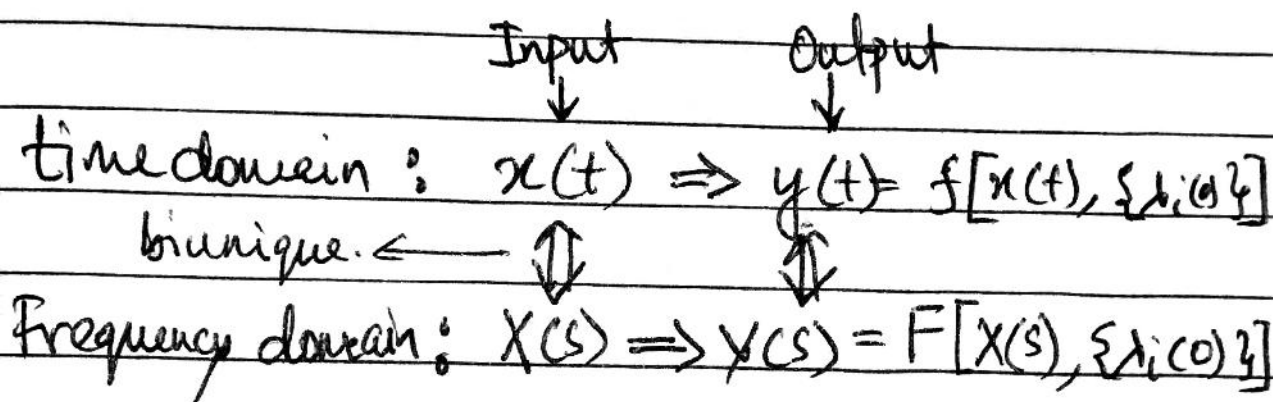 Input Output
↓ ↓
time domain : x(t) ⇒ y(t) = f[x(t), {λi(0)}]
biunique. ← ⇕ ⇕
Frequency domain : X(s) ⇒ Y(s) = F[X(s), {λi(0)}]